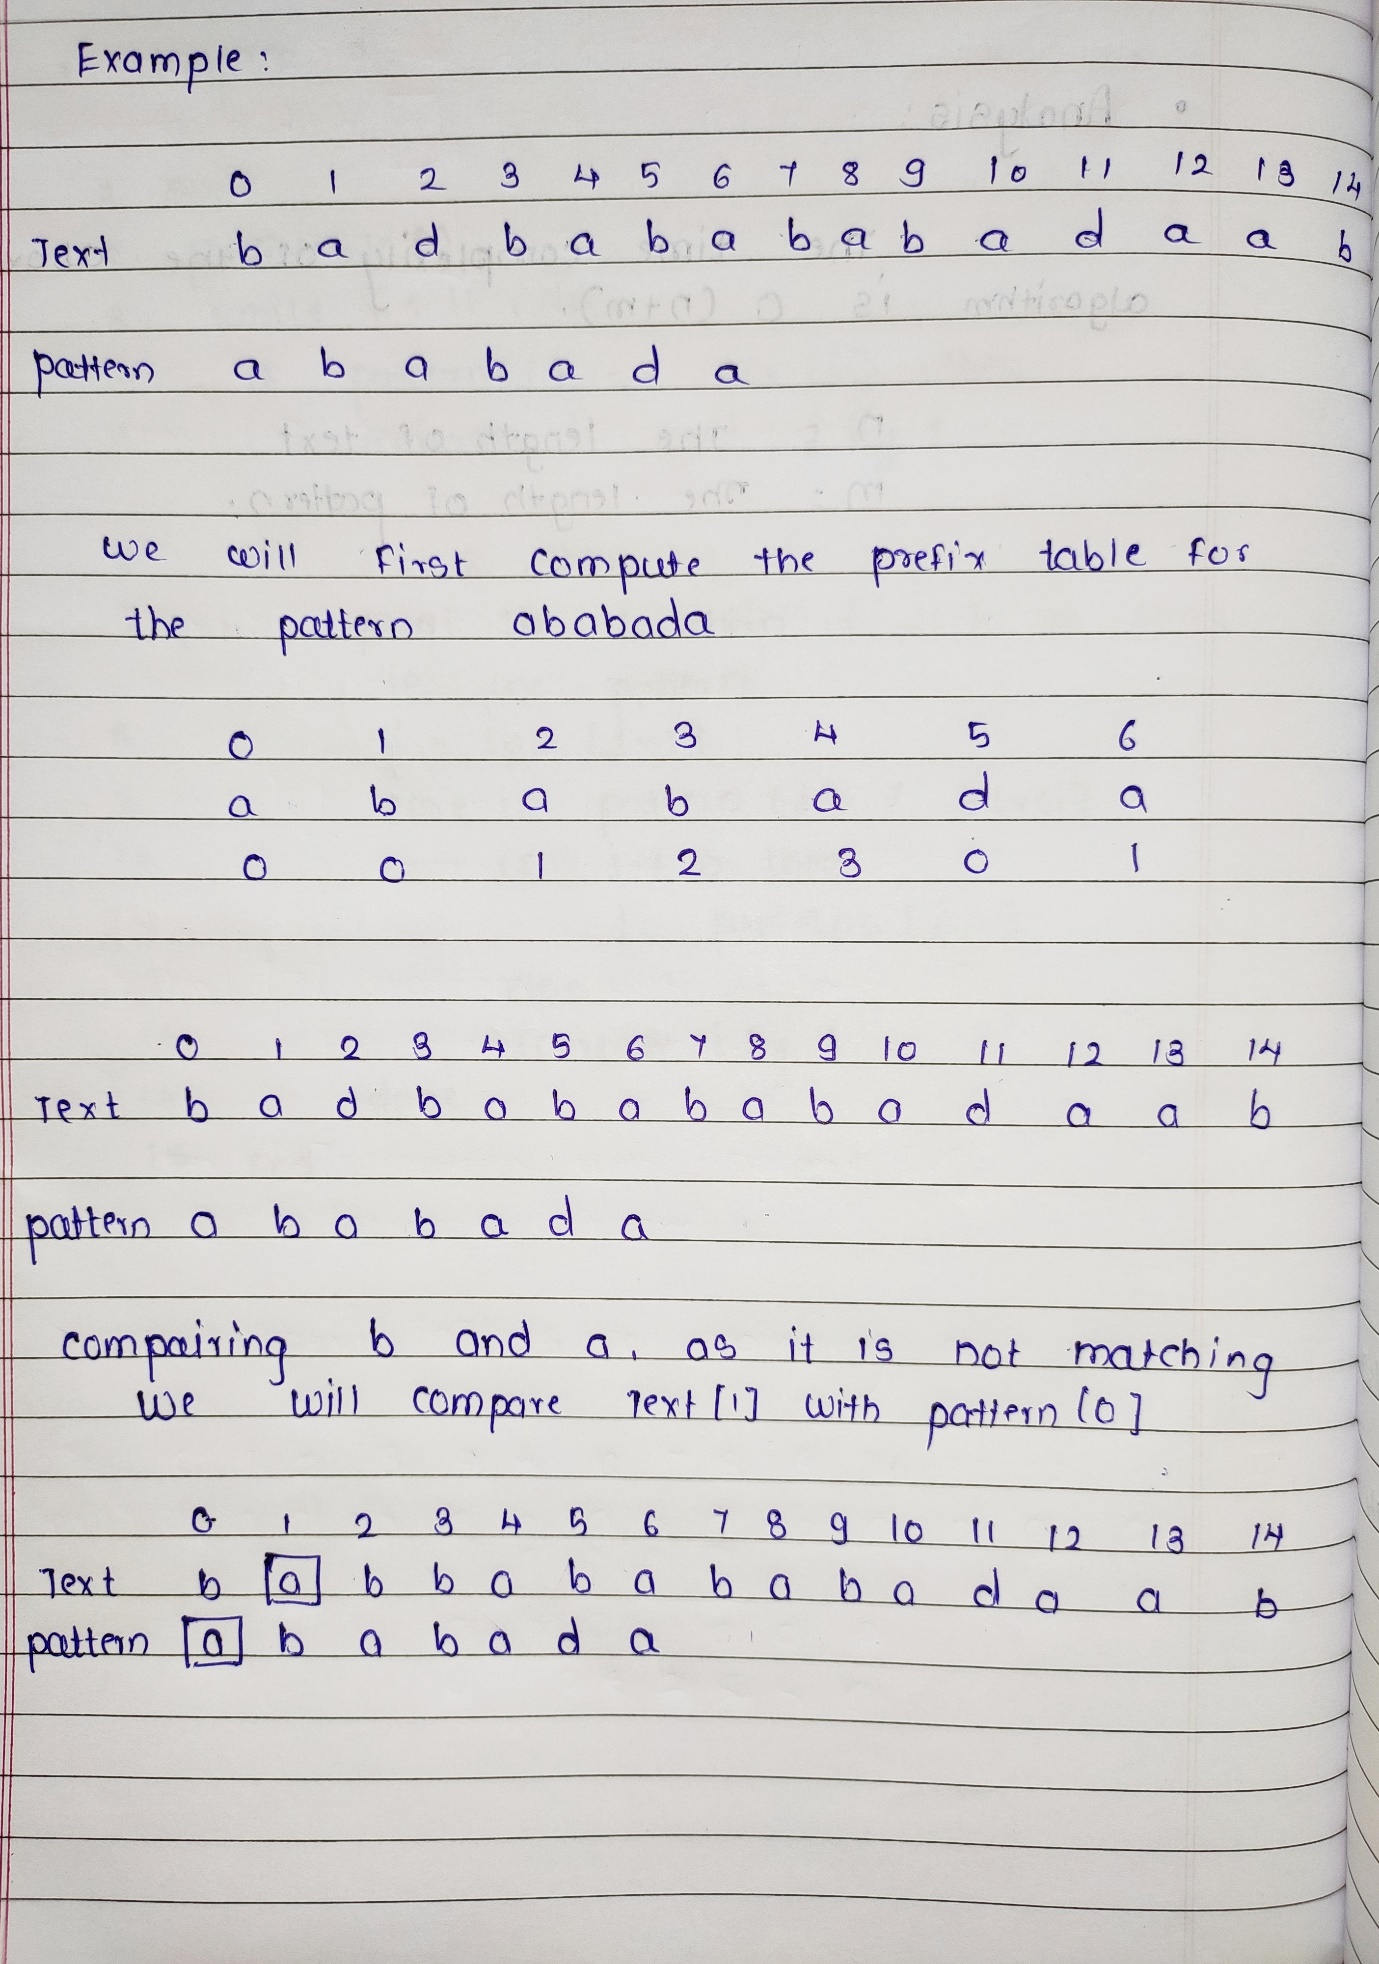 Example:
0 1 2 3 4 5 6 7 8 9 10 11 12 13 14
Text b a d b a b a b a b a d a a b
pattern a b a b a d a
we will first compute the prefix table for
the pattern ababada
0 1 2 3 4 5 6
a b a b a d a
0 0 1 2 3 0 1
0 1 2 3 4 5 6 7 8 9 10 11 12 13 14
Text b a d b a b a b a b a d a a b
pattern a b a b a d a
compairing b and a, as it is not matching
we will compare Text [1] with pattern [0]
0 1 2 3 4 5 6 7 8 9 10 11 12 13 14
Text b a b b a b a b a b a d a a b
pattern a b a b a d a